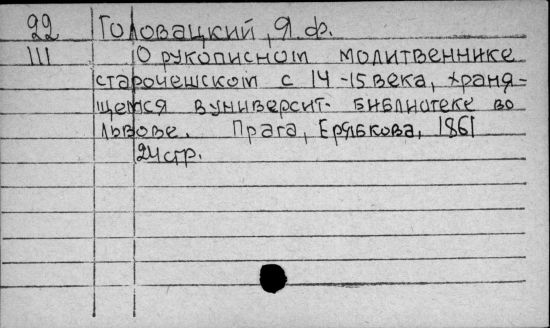 22 Головацкий, Я. Ф.
III О рукописном молитвеннике
старочешском с 14-15 века, храня-
щемся в университ. библиотеке во
Львове. Прага, Ерябкова, 1861
24 стр.